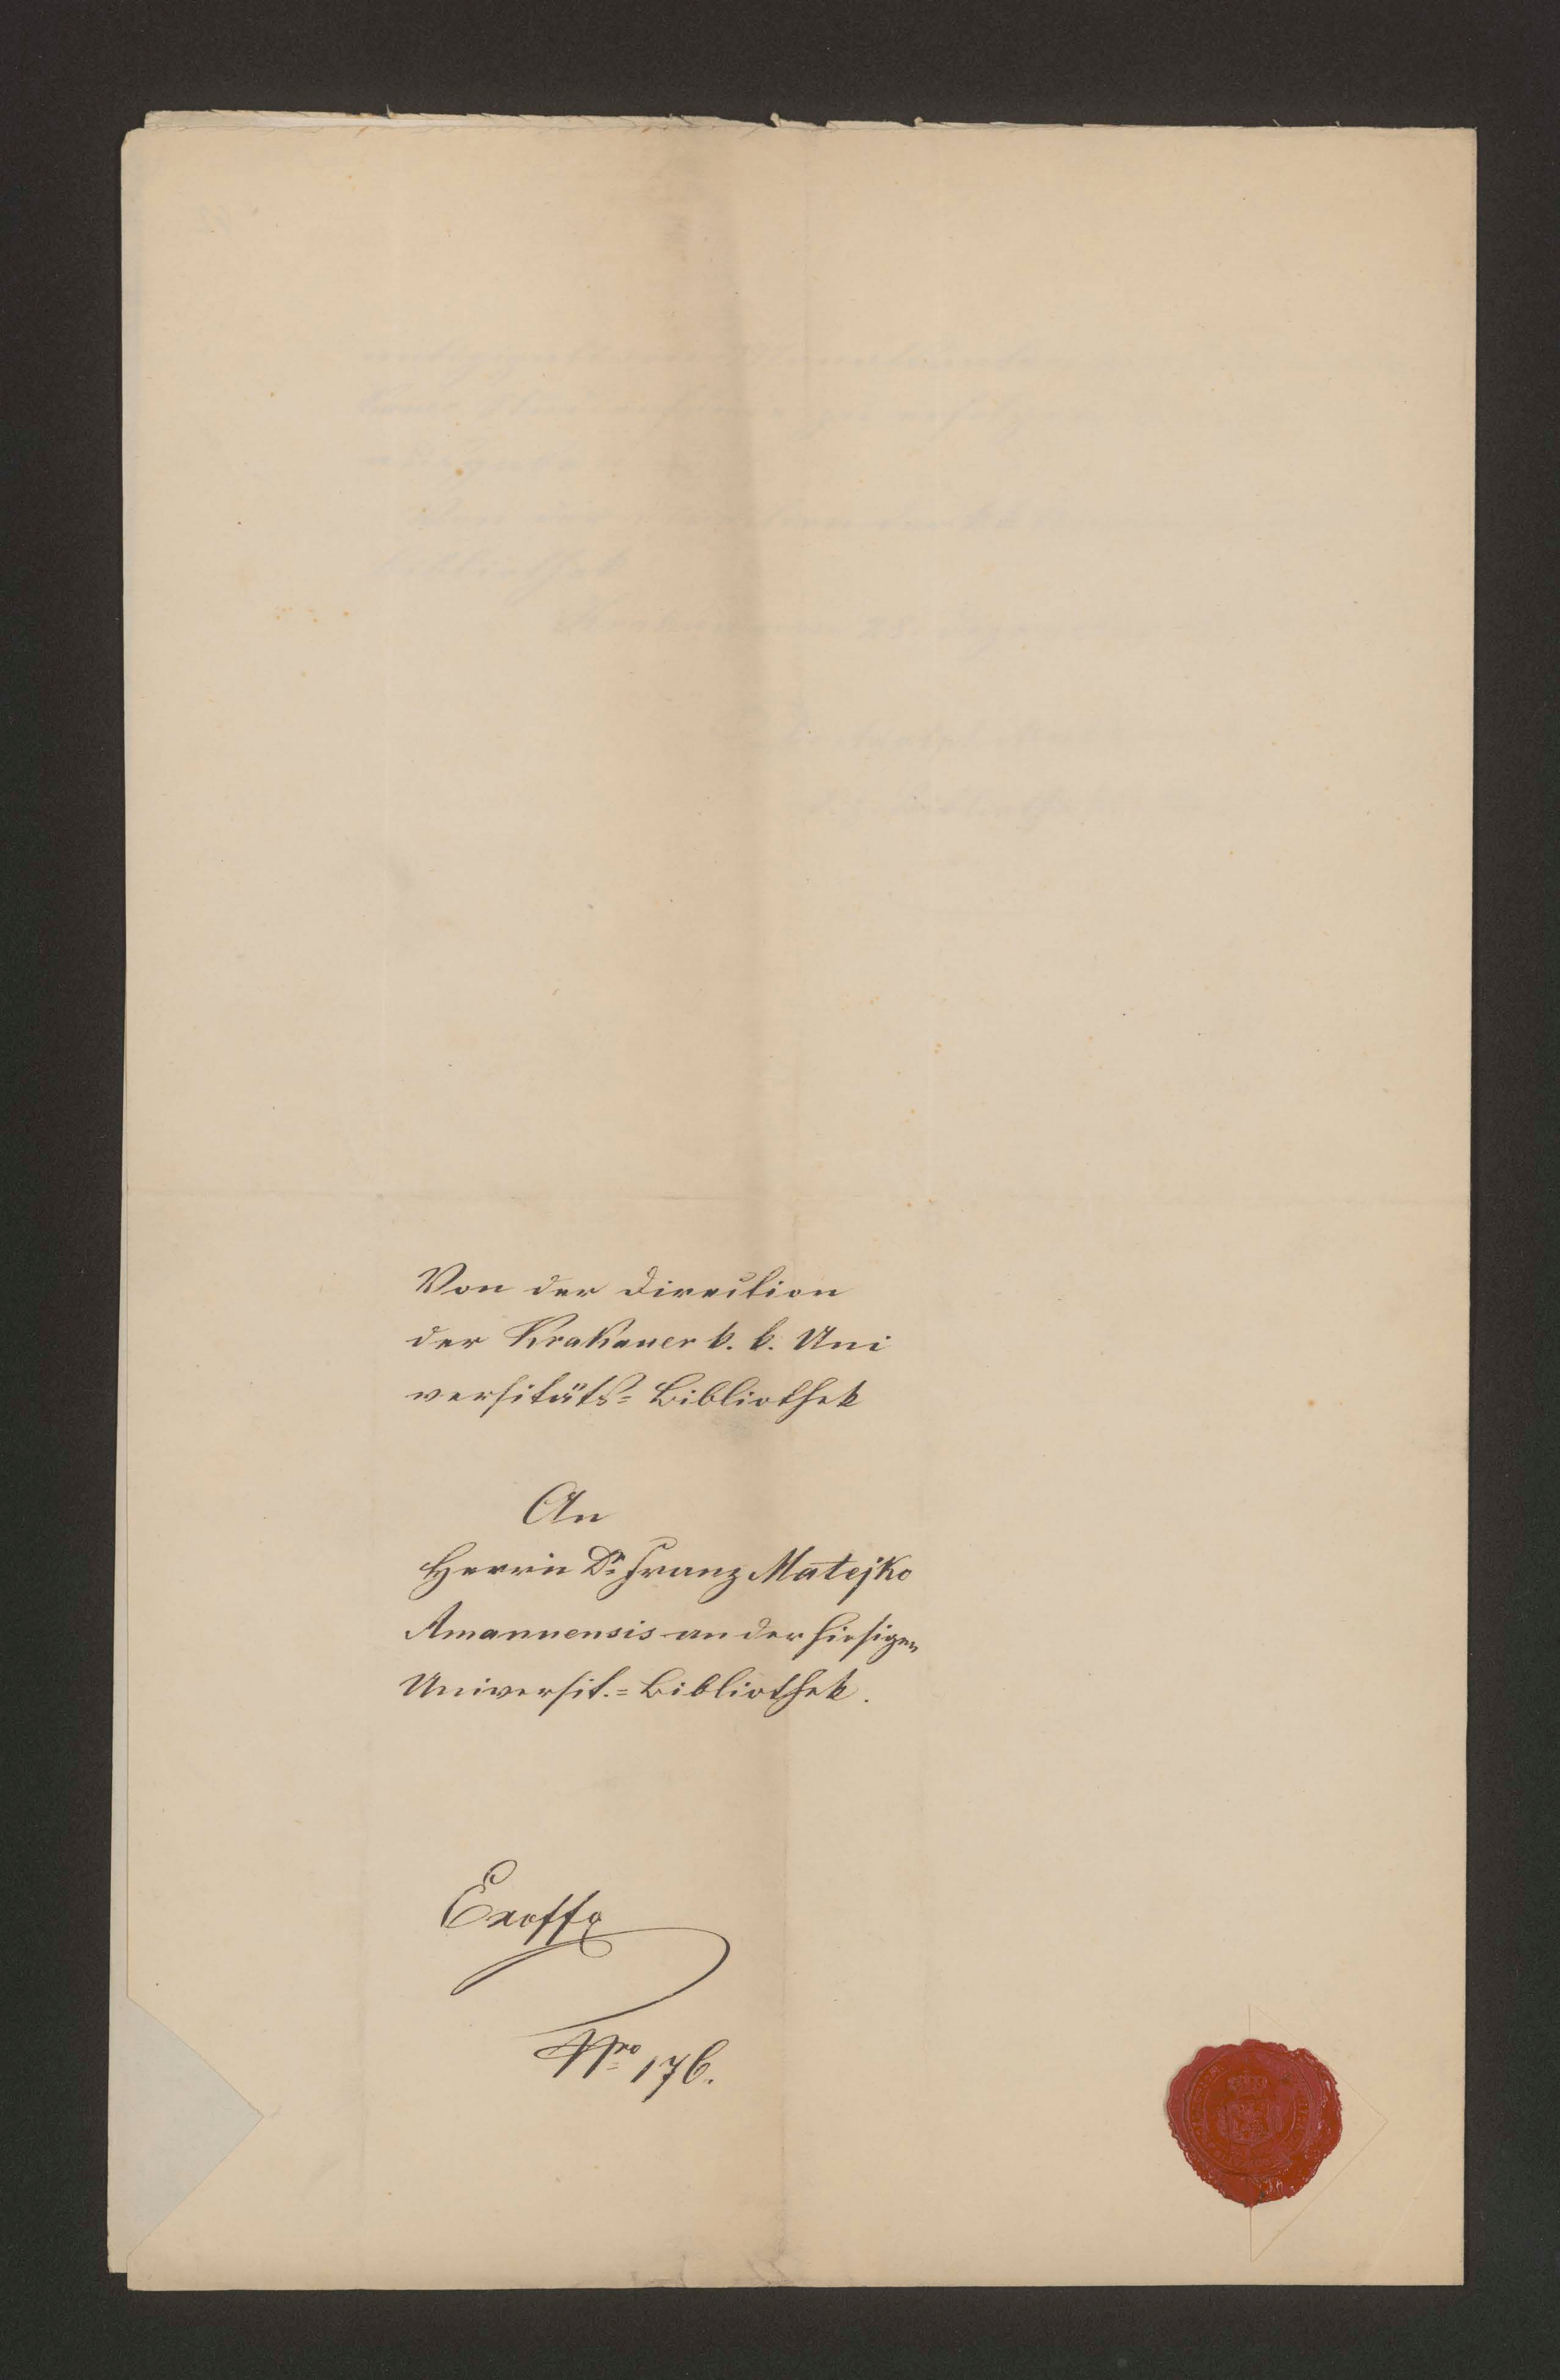 Von der Direction
der Krakauer k. k. Uni
versitäts= Bibliothek
An
Herrn Dr. Franz Matejko
Amanuensis an der hiesigen
Universit.= Bibliothek.
Exoffo
Nro 176.